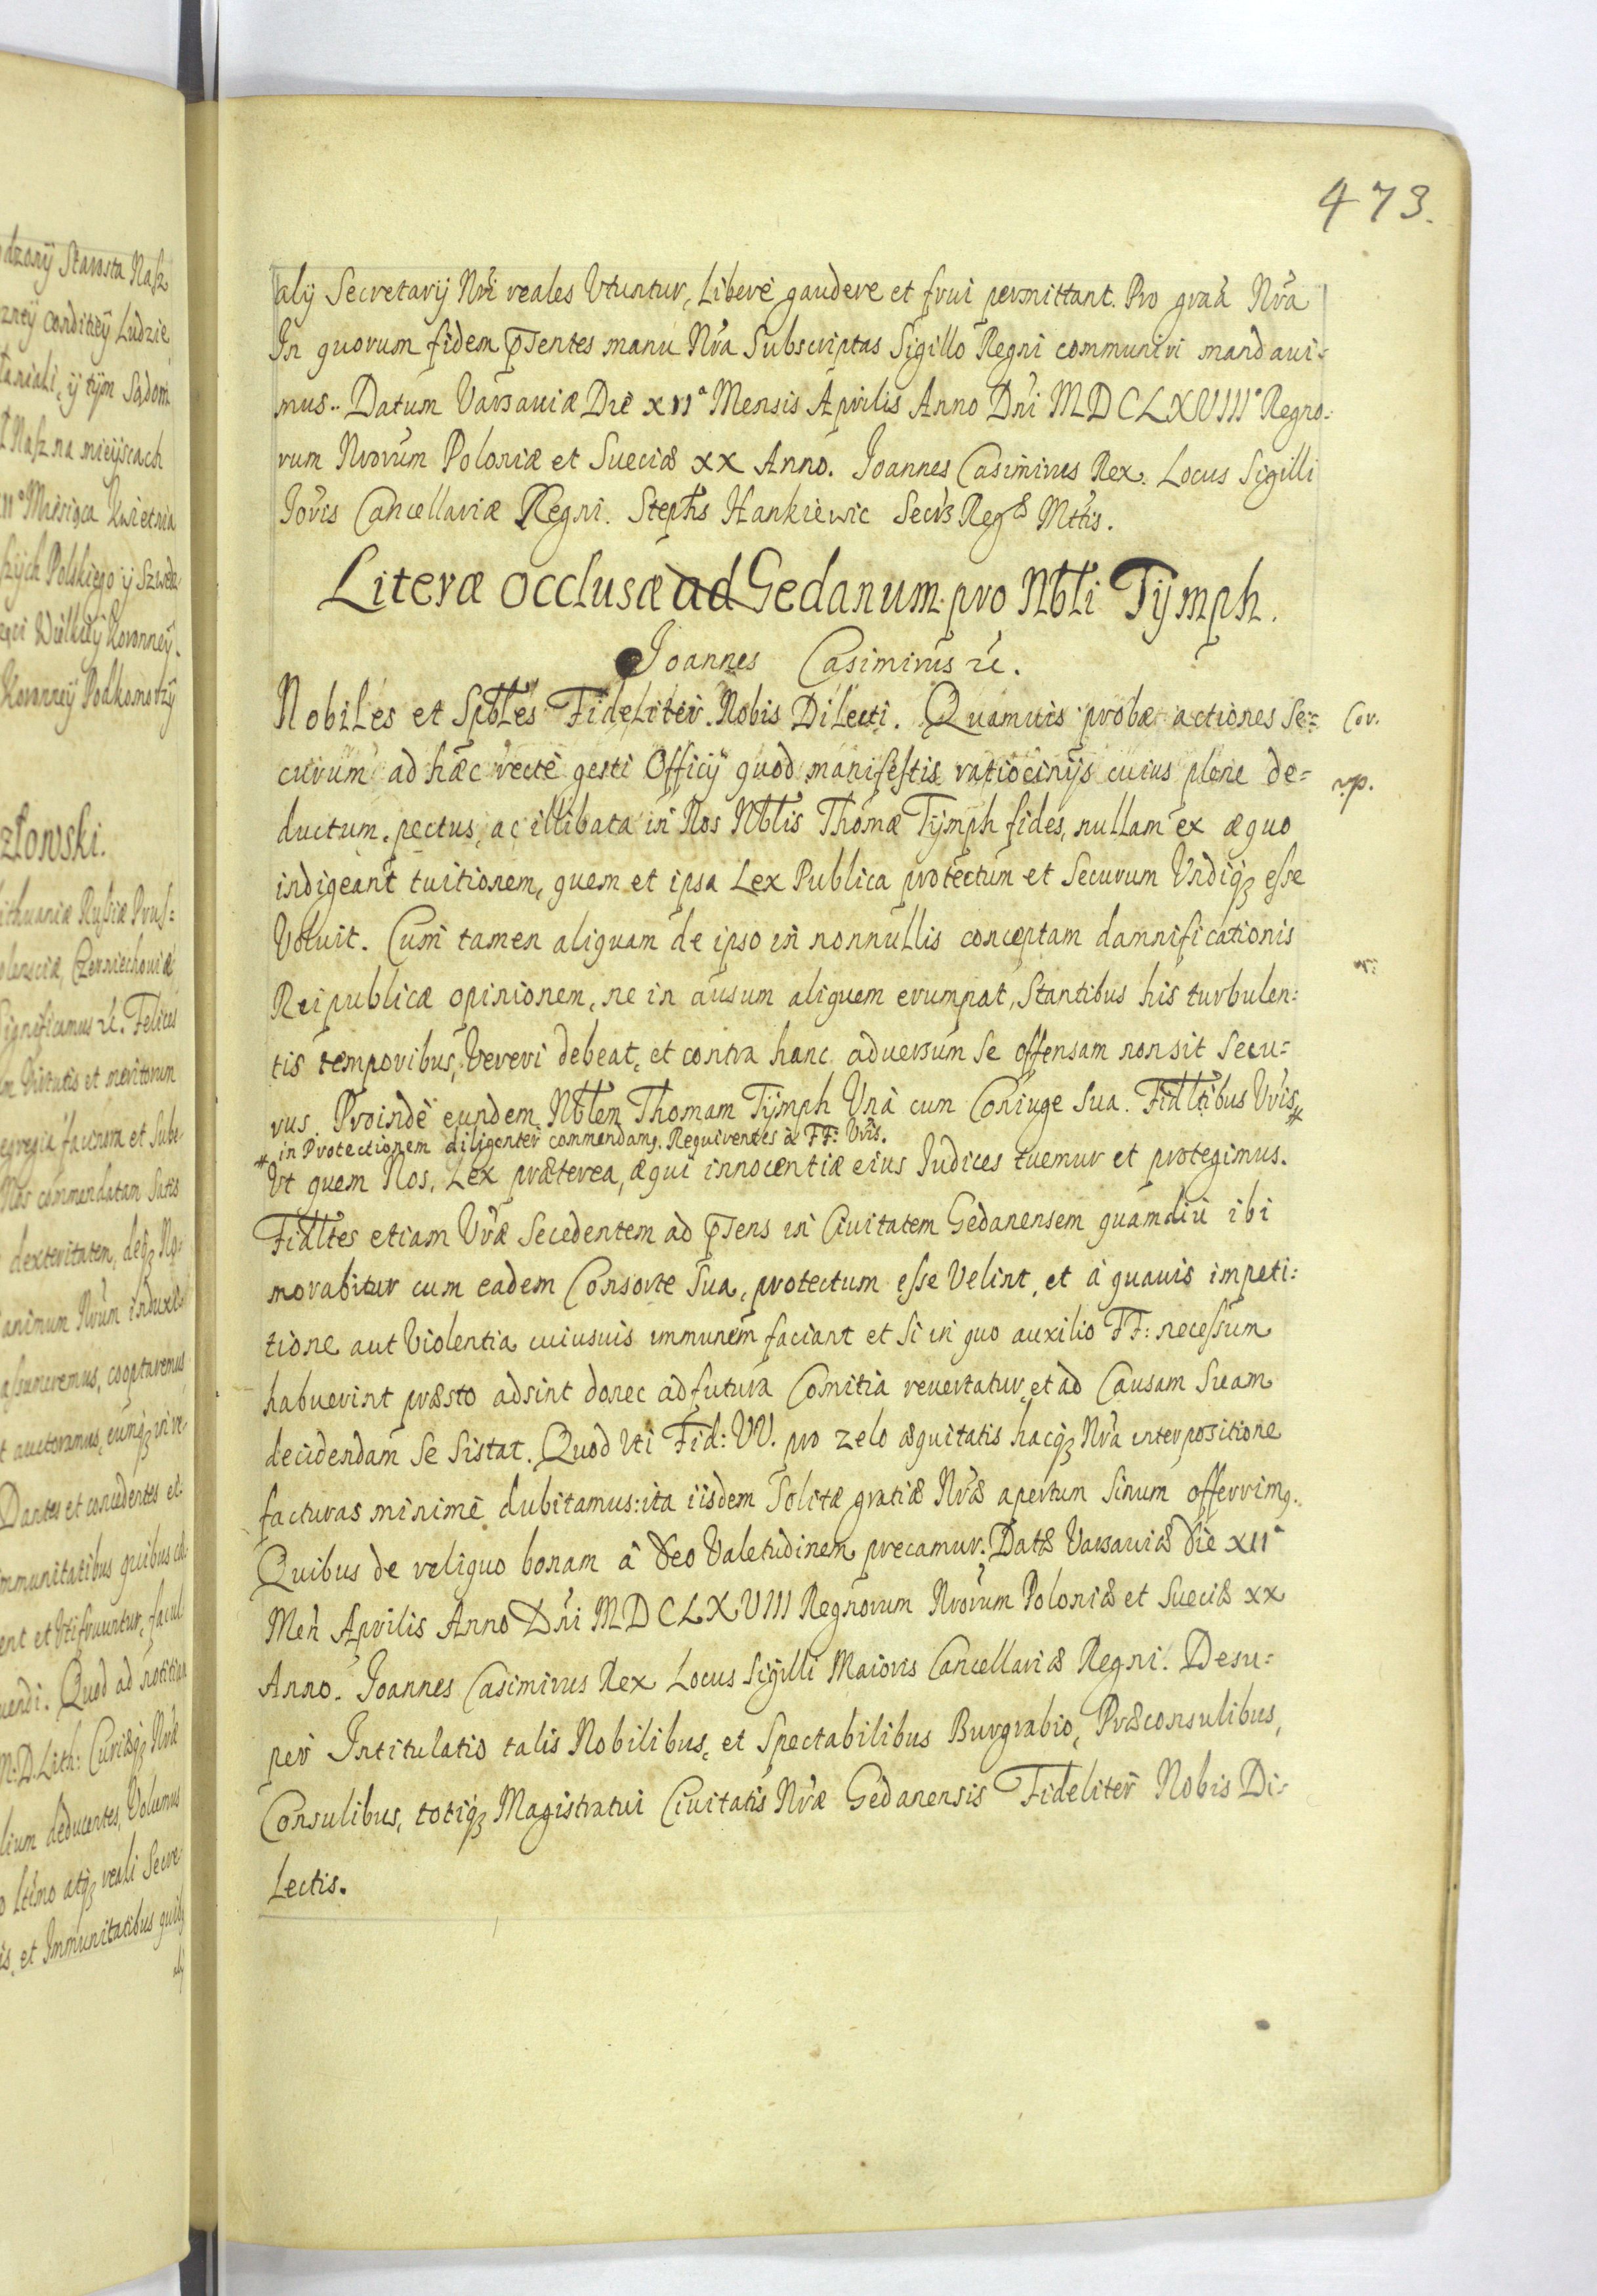 473.
alij Secretarij Nri reales Utuntur, Liberè gaudere et frui permittant. Pro graâ Nrâ
In quorum fidem psentes manu Nra Subscriptas Sigillo Regni communiri mandaui-
mus. Datum Varsauiæ Die XIIª Mensis Aprilis Anno Dni MDCLXVIIIº Regno-
rum Nrorum Poloniæ et Sueciæ XX Anno. Joannes Casimirus Rex. Locus Sigilli
Joris Cancellariæ Regni. Stephs Hankiewic Secrs Regæ Mttis.
Literæ occlusæ ad Gedanum pro Nbli Tÿmph.
Joannes Casimirus rc.
Nobiles et Spbles Fideliter Nobis Dilecti. Quamuis probæ actiones Se= Cor.
curum ad hæc rectè gesti Officij quod manifestis ratiocinijs cuius plene de= rp.
ductum pectus, ac illibata in Nos Nblis Thomæ Tÿmph fides, nullam ex æquo
indigeant tuitionem, quem et ipsa Lex Publica protectum et Securum Undiqz esse
Voluit. Cum tamen aliquam de ipso in nonnullis conceptam damnificationis
Reipublicæ opinionem, ne in ausum aliquem erumpat, Stantibus his turbulen:
tis temporibus, Vereri debeat, et contra hanc aduersum Se offensam non sit Secu=
rus. Proindè eundem Nblem Thomam Tÿmph Unà cum Coniuge Sua. Fidltibus Vris #
# in Protectionem diligenter commendamq. Requirentes à FF: Vris.
Ut quem Nos, Lex præterea, æqui innocentiæ eius Judices tuemur et protegimus.
Fidltes etiam Vræ Secedentem ad psens in Ciuitatem Gedanensem quamdiu ibi
morabitur cum eadem Consorte Sua, protectum esse Velint, et à quauis impeti:
tione aut Violentia cuiusuis immunem faciant et Si in quo auxilio FF: necessum
habuerint præsto adsint donec ad futura Comitia reuertatur, et ad Causam Suam
decidendam Se Sistat. Quod Uti Fid: VV. pro zelo æquitatis hacqz Nra interpositione
facturas minimè dubitamus: ita iisdem Solitæ gratiæ Nræ apertum Sinum offerrimq.
Quibus de reliquo bonam à Deo Valetudinem precamur. Datæ Varsauiæ Die XIIª
Men Aprilis Anno Dni MDCLXVIII Regnorum Nrorum Poloniæ et Sueciæ XX
Anno. Joannes Casimirus Rex Locus Sigilli Maioris Cancellariæ Regni. Desu=
per Intitulatio talis Nobilibus, et Spectabilibus Burgrabio, Præconsulibus,
Consulibus, totiqz Magistratui Ciuitatis Nræ Gedanensis Fideliter Nobis Di-
Lectis.